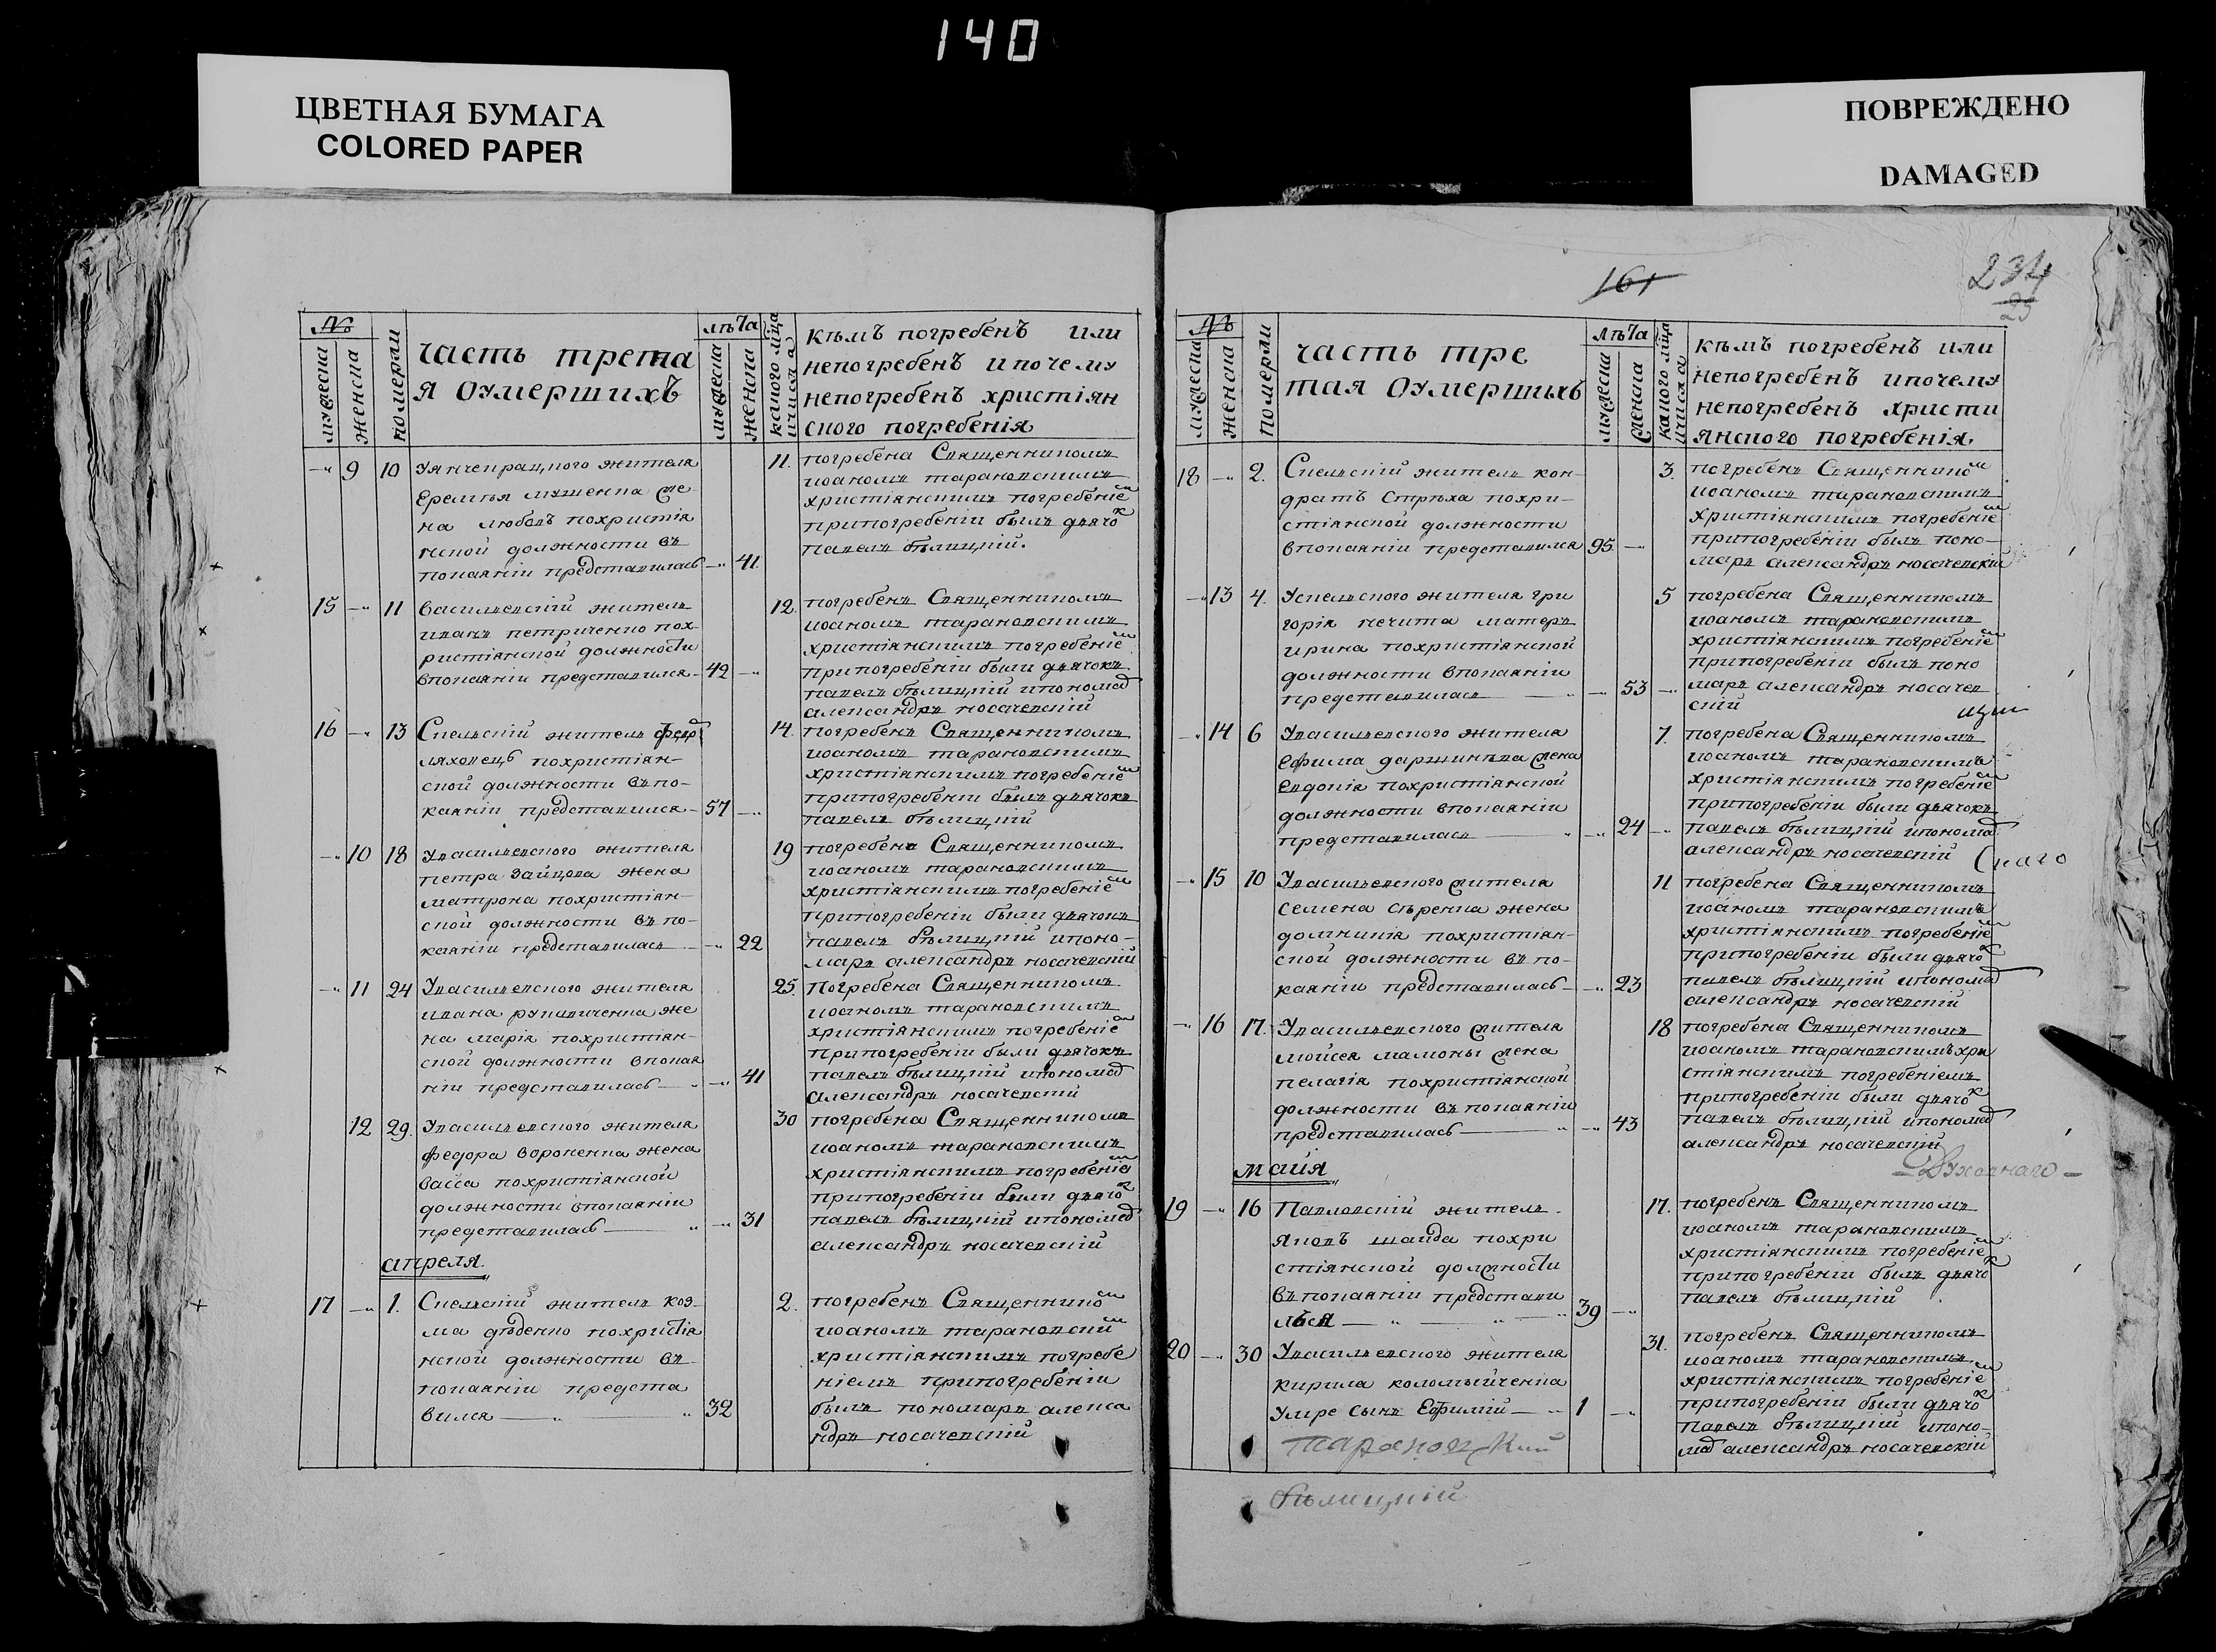 140
ЦВЕТНАЯ БУМАГА
COLORED PAPER
ПОВРЕЖДЕНО
DAMAGED
№
мужеска
женска
померли
часть третıа
я оумершихъ
лѣта
мужеска
женска
какого мца
ичисла
кѣмъ погребенъ или
непогребенъ ипочему
непогребенъ христіян
ского погребенія
9 10
Еремѣя
на любовъ похристіа
нской должности въ
покааніи представилась 41
11. погребена Священникомъ
иоаномъ тарановскимъ
христіянскимъ погребеніем
припогребеніи былъ дьячок
павелъ бѣлицкій.
15 11 васильевскій житель
иванъ петриченко пох-
ристіянской должности
впокаяніи представился 42
12. погребенъ Священникомъ
иоаномъ тарановскимъ
христіянскимъ погребеніем
припогребеніи были дьячокъ
павелъ бѣлицкій ипономар
александръ носачевскій
16 13 Спевскій житель федр
ляховецъ похристіян-
ской должности въ по-
каяніи представился 57
14. погребенъ Священникомъ
иоаномъ тарановскимъ
христіянскимъ погребеніем
припогребеніи былъ дьячокъ
павелъ бѣлицкій
10 18 Увасильевского жителя
петра зайцова жена
матрона похристіян-
ской должности въ по-
каяніи представилась 22
19 погребена Священникомъ
иоаномъ тарановскимъ
христіянскимъ погребеніем
припогребеніи были дьячокъ
павелъ бѣлицкій ипоно-
маръ александръ носачевскій
11 24 Увасильевского жителя
ивана рукавиченка же
на марія похристіян-
ской должности впокая
ніи представилась 41
25. Погребена Священникомъ
иоаномъ тарановскимъ
христіянскимъ погребеніем
припогребеніи были дьячокъ
павелъ бѣлицкій ипономар
александръ носачевскій
12 29. Увасильевского жителя
федора вороненка жена
васса похристіянской
должности впокаяніи
представилась 31
30 погребена Священникомъ
иоаномъ тарановскимъ
христіянскимъ погребеніем
припогребеніи были дьячок
павелъ бѣлицкій ипономар
александръ носачевскій
апреля.
17 1. Спевскій житель коз-
ма дѣденко похристіа
нской должности въ
покааніи предста
вился 32
2. погребенъ Священником
иоаномъ тарановским
христіянскимъ погребе
ніемъ припогребеніи
былъ пономаръ алекса
ндръ носачевскій
161
234
25
№
мужеска
женска
померли
часть тре
тая оумершихъ
лѣта
мужеска
женска
какого мца
ичисла
кѣмъ погребенъ или
непогребенъ ипочему
непогребенъ христи
янского погребенія
18 2. Спевскій житель кон-
дратъ Стрѣха похри-
стіянской должности
впокаяніи представился 95
3. погребенъ Священником
иоаномъ тарановскимъ
христіянскимъ погребеніем
припогребеніи былъ поно-
маръ александръ носачевскій
13 4. Успевского жителя гри
горія нечита матеръ
ирина похристіянской
должности впокаяніи
представилась 53
5 погребена Священникомъ
иоаномъ тарановскимъ
христіянскимъ погребеніем
припогребеніи былъ поно
маръ александръ носачев
скій
14 6 Увасильевского жителя
ефима жена
евдокія похристіянской
должности впокаяніи
представилась 24
7. погребена Священникомъ
иоаномъ тарановскимъ
христіянскимъ погребеніем
припогребеніи были дьячокъ
павелъ бѣлицкій ипономар
александръ носачевскій
15 10 Увасильевского жителя
семена сѣренка жена
домникія похристіян-
ской должности въ по-
каяніи представилась 23
11 погребена Священникомъ
иоаномъ тарановскимъ
христіянскимъ погребеніем
припогребеніи были дьячок
павелъ бѣлицкій ипономар
александръ носачевскій
16 17. Увасильевского жителя
мойсея мамоны жена
пелагія похристіянской
должности въ покаяніи
представилась 43
18 погребена Священникомъ
иоаномъ тарановскимъ хри
стіянскимъ погребеніемъ
припогребеніи были дьячок
павелъ бѣлицкій ипономар
александръ носачевскій
Духовнаго
маія
19 16 Павловскій житель
яковъ шайда похри
стіянской должности
въ покаяніи представи
лься 39
17. погребенъ Священникомъ
иоаномъ тарановскимъ
христіянскимъ погребеніем
припогребеніи былъ дьячок
павелъ бѣлицкій
20 30 Увасильевского жителя
кирила коломыйченка
умре сынъ Ефимій 1
31. погребенъ Священникомъ
иоаномъ тарановскимъ
христіянскимъ погребеніем
припогребеніи были дьячок
павелъ бѣлицкій ипоно-
мар александръ носачевскій
Тарановский
бѣлицкій